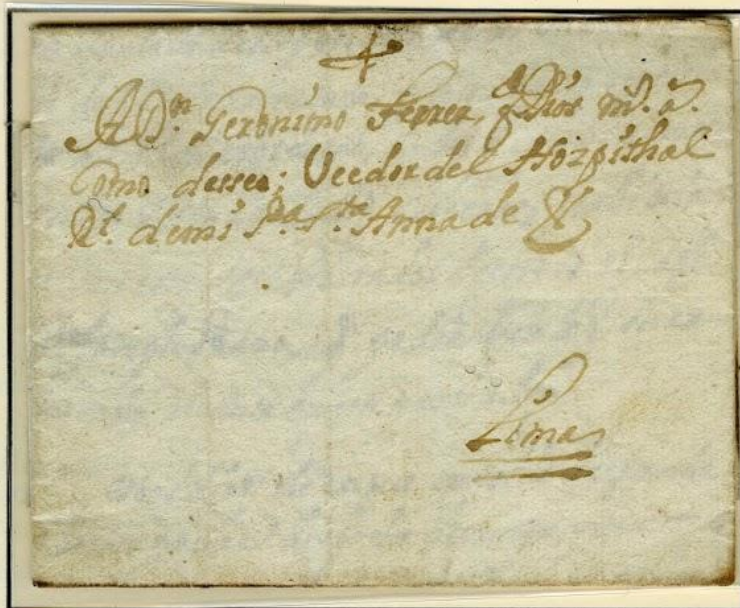 A Dn. Geronimo Ferrer, q Dios m.s a.s
Como dessea; Veedor del Hozpithal
Rl. de mi Sa. Sta. Anna de
Lima